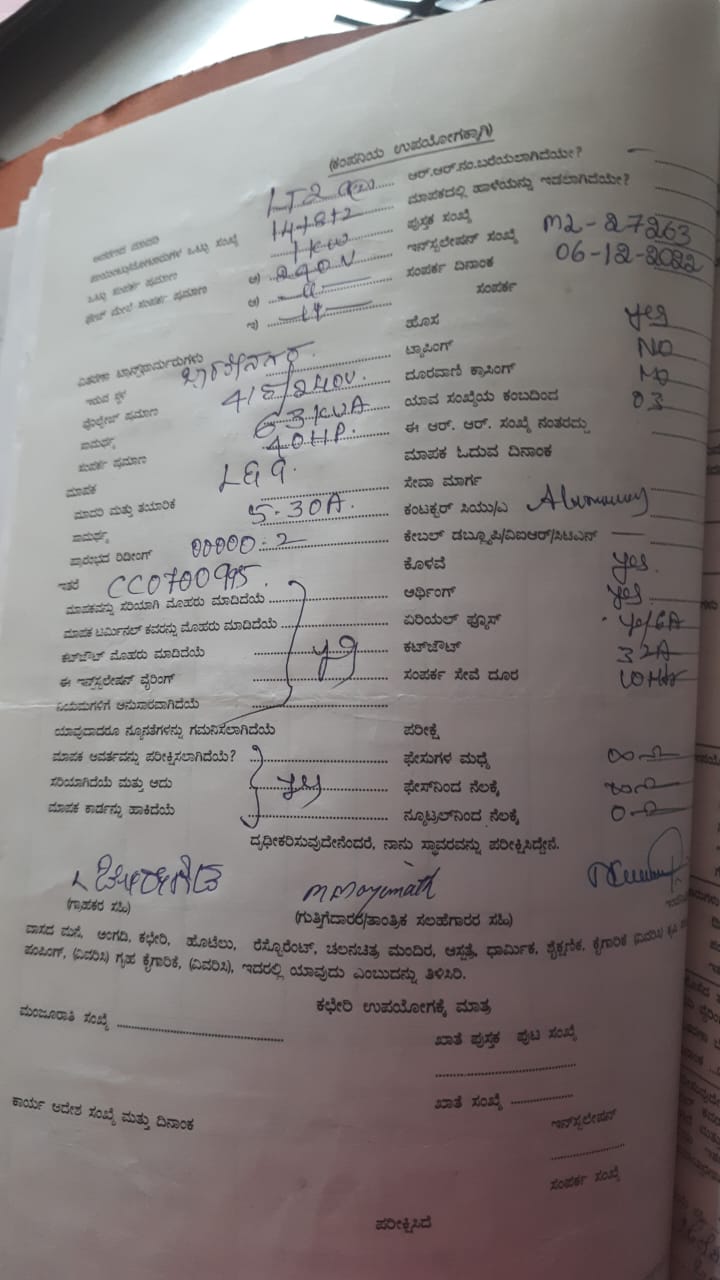 (ಕಂಪನಿಯ ಉಪಯೋಗಕ್ಕಾಗಿ)
LT2 ಆರ್.ಆರ್.ನಂ.ಬರೆಯಲಾಗಿದೆಯೇ?
ಮಾಪಕದಲ್ಲಿ ಹಾಳೆಯನ್ನು ಇಡಲಾಗಿದೆಯೇ?
ಒಟ್ಟು ಸಂಖ್ಯೆ 1+1+1+2 ಪುಸ್ತಕ ಸಂಖ್ಯೆ
ಒಟ್ಟು ಸಂಪರ್ಕ ಪ್ರಮಾಣ 1KW ಇನ್‌ಸ್ಟಲೇಷನ್ ಸಂಖ್ಯೆ M2-27263
ಫೇಸ್ ಮೇಲೆ ಸಂಪರ್ಕ ಪ್ರಮಾಣ ಅ) 240V ಸಂಪರ್ಕ ದಿನಾಂಕ 06-12-2022
ಆ) -11- ಸಂಪರ್ಕ
ಇ) -11- ಹೊಸ yes
ವಿತರಣಾ ಟ್ರಾನ್ಸ್‌ಫಾರ್ಮರುಗಳು ಟ್ಯಾಪಿಂಗ್ NO
ಇರುವ ಸ್ಥಳ ದೂರವಾಣಿ ಕ್ರಾಸಿಂಗ್ NO
ವೋಲ್ಟೇಜ್ ಪ್ರಮಾಣ 415/240V. ಯಾವ ಸಂಖ್ಯೆಯ ಕಂಬದಿಂದ 03
ಸಾಮರ್ಥ್ಯ 63KVA ಈ ಆರ್. ಆರ್. ಸಂಖ್ಯೆ ನಂತರದ್ದು
ಸಂಪರ್ಕ ಪ್ರಮಾಣ 40HP. ಮಾಪಕ ಓದುವ ದಿನಾಂಕ
ಮಾಪಕ ಸೇವಾ ಮಾರ್ಗ
ಮಾದರಿ ಮತ್ತು ತಯಾರಿಕೆ L&G. ಕಂಟಕ್ಟರ್ ಸಿಯು/ಎ
ಸಾಮರ್ಥ್ಯ 5-30A. ಕೇಬಲ್ ಡಬ್ಲ್ಯೂಪಿ/ವಿಐಆರ್/ಸಿಟಿಎಸ್
ಪ್ರಾರಂಭದ ರಿಡೀಂಗ್ 00000.2 ಕೊಳವೆ yes.
ಇತರೆ CC0700995. ಅರ್ಥಿಂಗ್ yes
ಮಾಪಕವನ್ನು ಸರಿಯಾಗಿ ಮೊಹರು ಮಾಡಿದೆಯೆ ಏರಿಯಲ್ ಫ್ಯೂಸ್
ಮಾಪಕ ಟರ್ಮಿನಲ್ ಕವರನ್ನು ಮೊಹರು ಮಾಡಿದೆಯೆ ಕಟ್‌ಔಟ್ 32A
ಕಟ್‌ಔಟ್ ಮೊಹರು ಮಾಡಿದೆಯೆ yes ಸಂಪರ್ಕ ಸೇವೆ ದೂರ
ಈ ಇನ್‌ಸ್ಟಲೇಷನ್ ವೈರಿಂಗ್
ನಿಯಮಗಳಿಗೆ ಅನುಸಾರವಾಗಿದೆಯೆ
ಯಾವುದಾದರೂ ನ್ಯೂನತೆಗಳನ್ನು ಗಮನಿಸಲಾಗಿದೆಯೆ ಪರೀಕ್ಷೆ
ಮಾಪಕ ಆವರ್ತವನ್ನು ಪರೀಕ್ಷಿಸಲಾಗಿದೆಯೆ? ಫೇಸುಗಳ ಮಧ್ಯೆ ∞Ω
ಸರಿಯಾಗಿದೆಯೆ ಮತ್ತು ಅದು yes ಫೇಸ್‌ನಿಂದ ನೆಲಕ್ಕೆ ∞Ω
ಮಾಪಕ ಕಾರ್ಡನ್ನು ಹಾಕಿದೆಯೆ ನ್ಯೂಟ್ರಲ್‌ನಿಂದ ನೆಲಕ್ಕೆ 0-Ω
ದೃಢೀಕರಿಸುವುದೇನೆಂದರೆ, ನಾನು ಸ್ಥಾವರವನ್ನು ಪರೀಕ್ಷಿಸಿದ್ದೇನೆ.
(ಗ್ರಾಹಕರ ಸಹಿ) (ಗುತ್ತಿಗೆದಾರರ/ತಾಂತ್ರಿಕ ಸಲಹೆಗಾರರ ಸಹಿ)
ವಾಸದ ಮನೆ, ಅಂಗಡಿ, ಕಛೇರಿ, ಹೊಟೆಲು, ರೆಸ್ಟೋರೆಂಟ್, ಚಲನಚಿತ್ರ ಮಂದಿರ, ಆಸ್ಪತ್ರೆ, ಧಾರ್ಮಿಕ, ಶೈಕ್ಷಣಿಕ, ಕೈಗಾರಿಕೆ (ವಿವರಿಸಿ)
ಪಂಪಿಂಗ್, (ವಿವರಿಸಿ) ಗೃಹ ಕೈಗಾರಿಕೆ, (ವಿವರಿಸಿ), ಇದರಲ್ಲಿ ಯಾವುದು ಎಂಬುದನ್ನು ತಿಳಿಸಿರಿ.
ಕಛೇರಿ ಉಪಯೋಗಕ್ಕೆ ಮಾತ್ರ
ಮಂಜೂರಾತಿ ಸಂಖ್ಯೆ ಖಾತೆ ಪುಸ್ತಕ ಪುಟ ಸಂಖ್ಯೆ
ಖಾತೆ ಸಂಖ್ಯೆ
ಕಾರ್ಯ ಆದೇಶ ಸಂಖ್ಯೆ ಮತ್ತು ದಿನಾಂಕ ಇನ್‌ಸ್ಟಲೇಷನ್
ಸಂಪರ್ಕ ಸಂಖ್ಯೆ
ಪರೀಕ್ಷಿಸಿದೆ